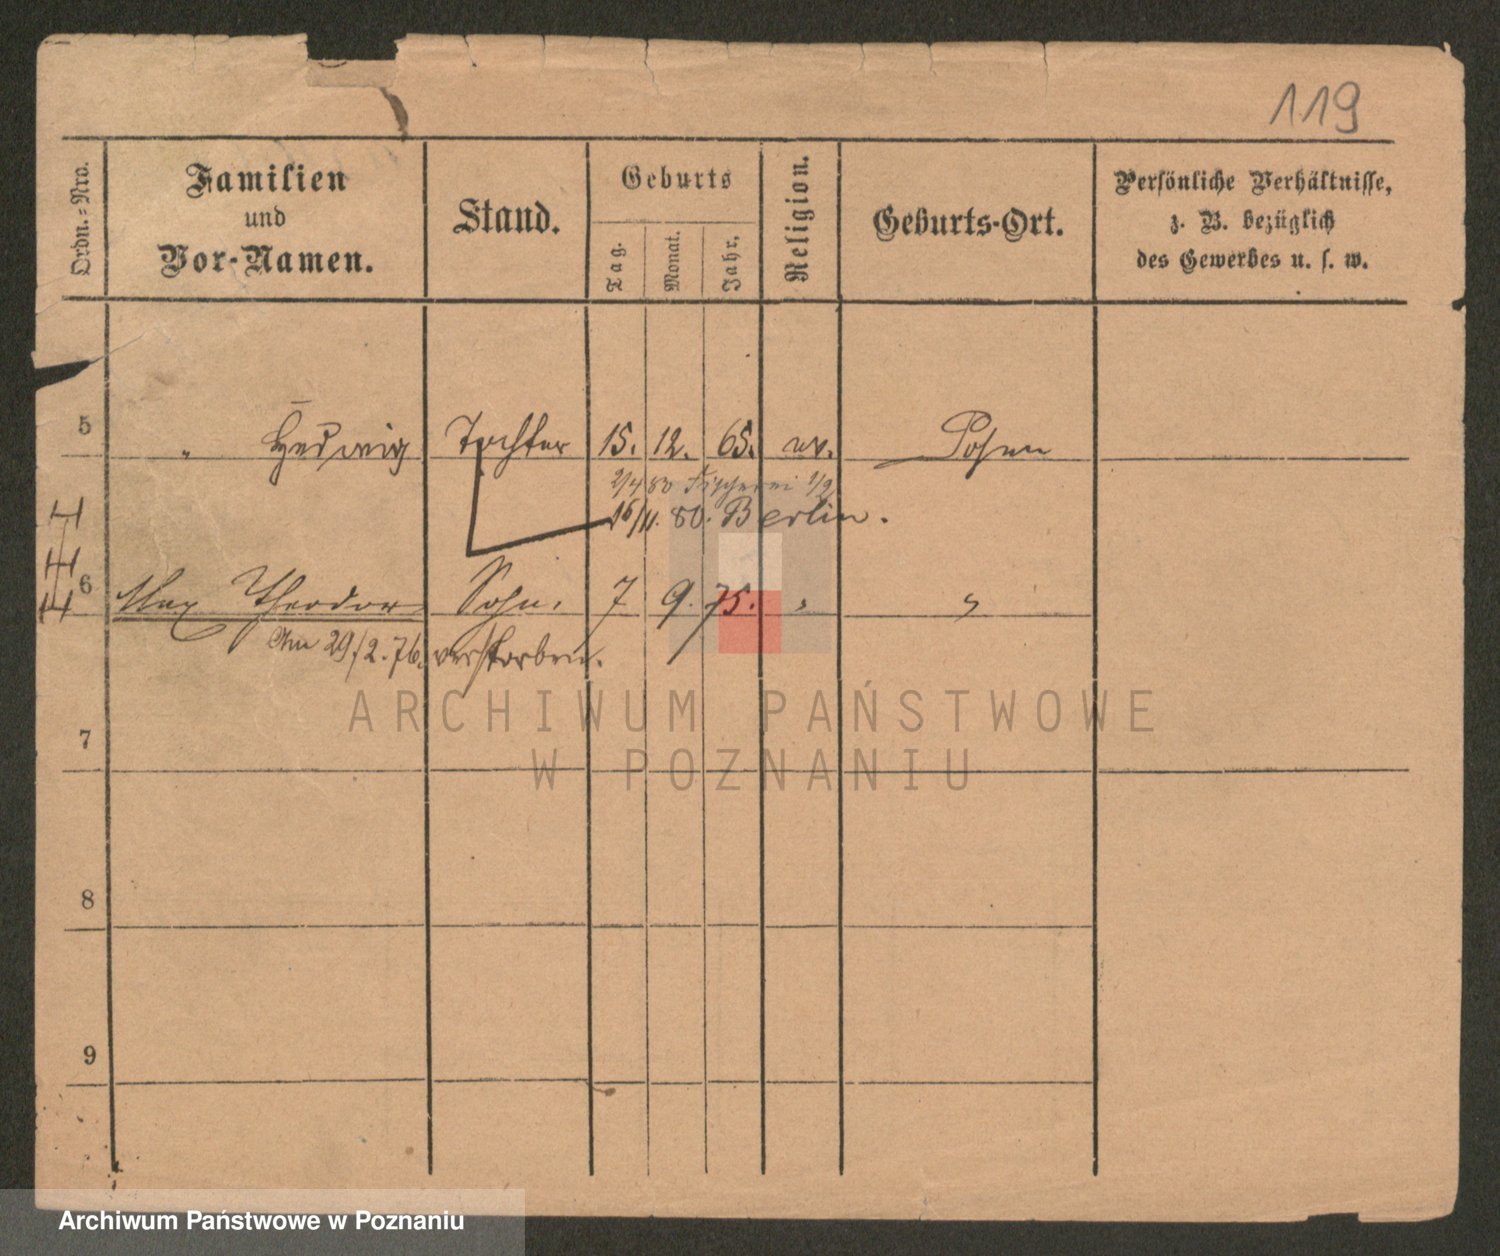 119
Ordn.-Nro.
Familien
und
Vor-Namen.
Stand.
Geburts
Tag.
Monat.
Jahr.
Religion.
Geburts-Ort.
Persönliche Verhältnisse,
z. B. bezüglich
des Gewerbes u. s. w.
5 " Hedwig Tochter 15. 12. 65. ev. Posen
2/4 80 Fischerei 1/9
16/11. 80. Berlin.
6 Max Theodor Sohn. 7 9. 75. " "
Am 29/2. 76. verstorben.
7
8
9
ARCHIWUM PAŃSTWOWE
W POZNANIU
Archiwum Państwowe w Poznaniu